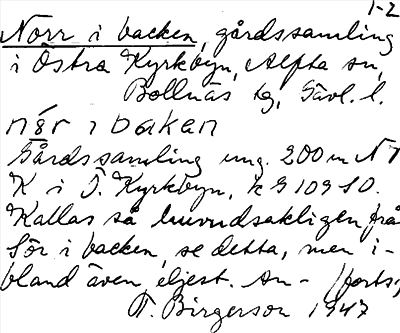 1-2
Norr i backen, gårdssamling
i Östra Kyrkbyn, Alfta sn,
Bollnäs tg, Gävl. l.
når i bakan
Gårdssamling ung. 200 m N
K i Ö. Kyrkbyn, k 9109 SO.
Kallas så huvudsakligen frå
Sör i backen, se detta, men i-
bland även eljest. An- (forts.)
T. Birgerson 1947